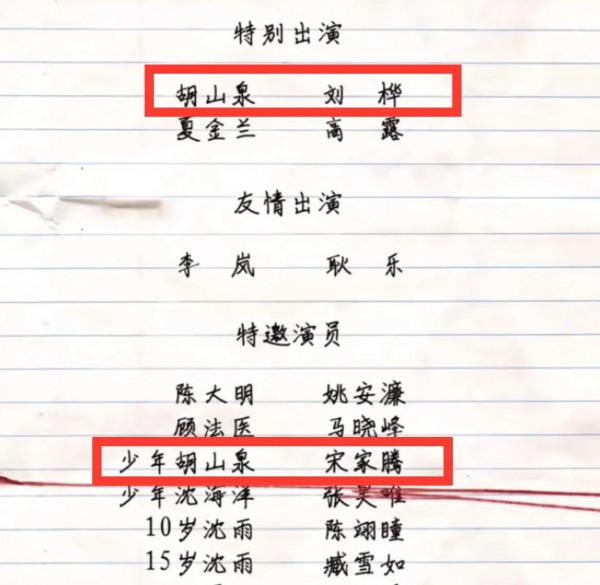 特别出演
胡山泉 刘桦
夏金兰 高露
友情出演
李岚 耿乐
特邀演员
陈大明 姚安濂
顾法医 马晓峰
少年胡山泉 宋家腾
少年沈海洋 张昊唯
10岁沈雨 陈翊曈
15岁沈雨 臧雪如